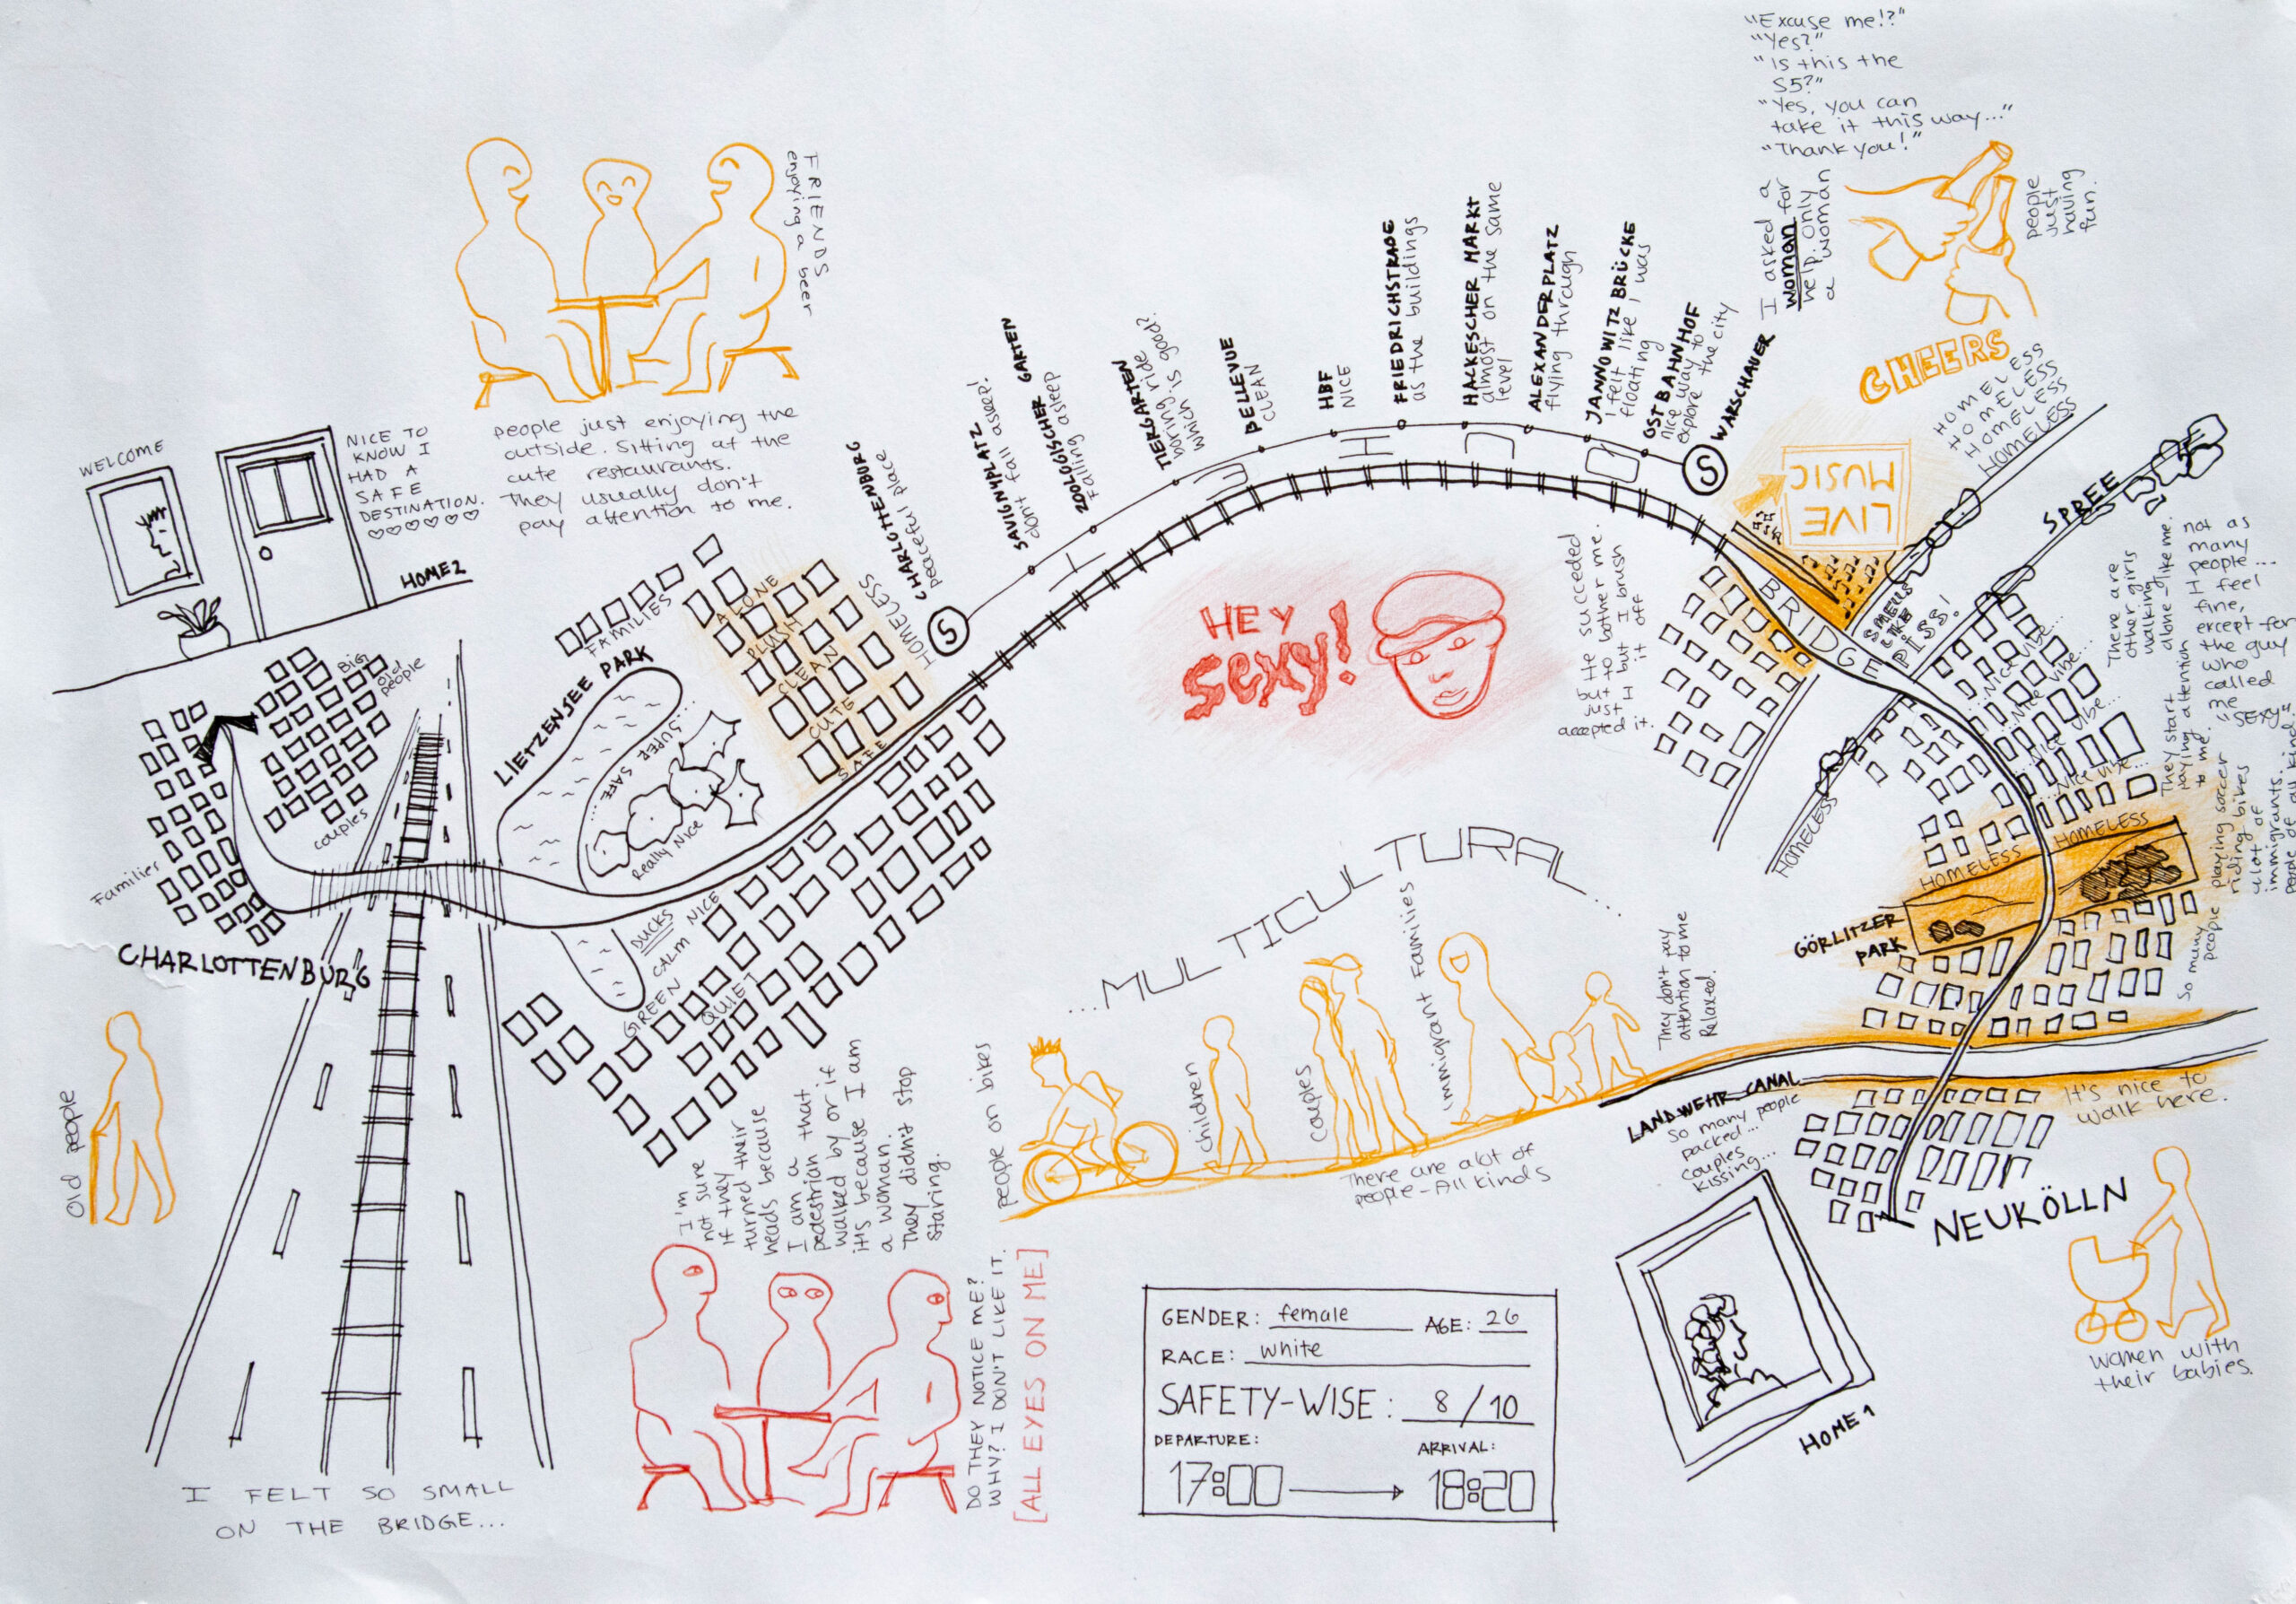 "Excuse me!?"
"Yes?"
"Is this the
S5?"
"Yes, you can
take it this way..."
"Thank you!"
I asked a
woman for
help. Only
a woman
people
just
having
fun.
CHEERS
FRIENDS
enjoying a beer
people just enjoying the
outside. Sitting at the
cute restaurants.
They usually don't
pay attention to me.
WELCOME
NICE TO
KNOW I
HAD A
SAFE
DESTINATION.
♡♡♡♡♡♡
HOME 2
S
CHARLOTTENBURG
peaceful place
SAVIGNYPLATZ
don't fall asleep!
ZOOLOGISCHER GARTEN
falling asleep
TIERGARTEN
boring ride
which is good?
BELLEVUE
CLEAN
HBF
NICE
FRIEDRICHSTRAßE
as the buildings
HACKESCHER MARKT
almost on the same
level
ALEXANDERPLATZ
flying through
JANNOWITZ BRÜCKE
I felt like I was
floating
OSTBAHNHOF
nice way to
explore the city
S
WARSCHAUER
HOMELESS
HOMELESS
HOMELESS
HOMELESS
LIVE
MUSIC
SPREE
BRIDGE
SMELLS
LIKE
PISS!
HOMELESS
HEY
SEXY!
He succeded
but to bother me.
just I but I brush
accepted it. it off
...Nice vibe...
...Nice vibe...
...Nice vibe...
...Nice vibe...
There are
other girls
walking
alone-like me.
They start
paying attention
to me.
not as
many
people...
I feel
fine,
except for
the guy
who
called
me
"sexy"
playing soccer
riding bikes
alot of
immigrants.
people of all kinds
So many
people
HOMELESS
HOMELESS
GÖRLITZER
PARK
FAMILIES
ALONE
PLUSH
CLEAN
CUTE
SAFE
HOMELESS
LIETZENSEE PARK
...SUPER SAFE...
Really Nice
BIG
old
people
couples
Families
CHARLOTTENBURG
DUCKS
NICE
CALM
GREEN
QUIET
Old people
I FELT SO SMALL
ON THE BRIDGE...
I'm
not sure
if they
turned their
heads because
I am a
pedestrian that
walked by or if
it's because I am
a woman.
They didn't stop
staring.
DO THEY NOTICE ME?
WHY? I DON'T LIKE IT.
[ALL EYES ON ME]
...MULTICULTURAL...
people on bikes
children
couples
immigrant Families
They don't pay
attention to me
Relaxed.
There are alot of
people-All kinds
LANDWEHR CANAL
So many people
packed...
couples
kissing...
It's nice to
walk here.
NEUKÖLLN
HOME 1
women with
their babies.
GENDER: female AGE: 26
RACE: white
SAFETY-WISE: 8/10
DEPARTURE: ARRIVAL:
17:00 → 18:20